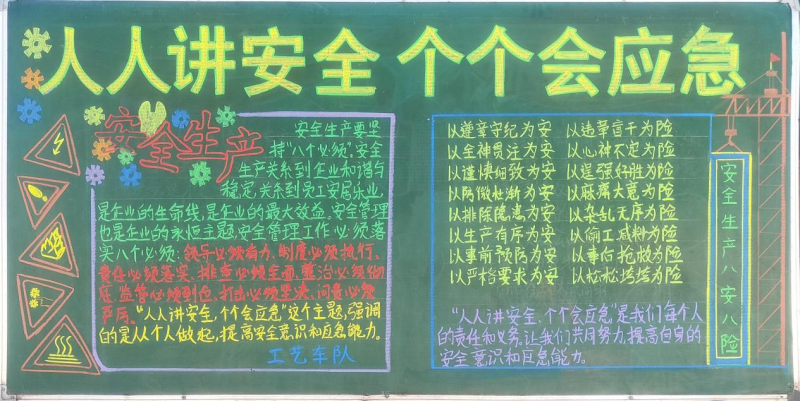 人人讲安全 个个会应急
安全生产
安全生产要坚
持“八个必须”,安全
生产关系到企业和谐与
稳定,关系到员工安居乐业,
是企业的生命线,是企业的最大效益,安全管理
也是企业的永恒主题,安全管理工作必须落
实八个必须:领导必须有力,制度必须执行、
责任必须落实,排查必须全面,整治必须彻
底,监管必须到位,打击必须坚决,问责必须
严厉。“人人讲安全,个个会应急”这个主题,强调
的是从个人做起,提高安全意识和应急能力。
工艺车队
以遵章守纪为安 以违章盲干为险
以全神贯注为安 以心神不定为险
以谨慎细致为安 以逞强好胜为险
以防微杜渐为安 以麻痹大意为险
以排除隐患为安 以杂乱无序为险
以生产有序为安 以偷工减料为险
以事前预防为安 以事后抢救为险
以严格要求为安 以松松垮垮为险
“人人讲安全,个个会应急”是我们每个人
的责任和义务,让我们共同努力,提高自身的
安全意识和应急能力。
安全生产八安八险